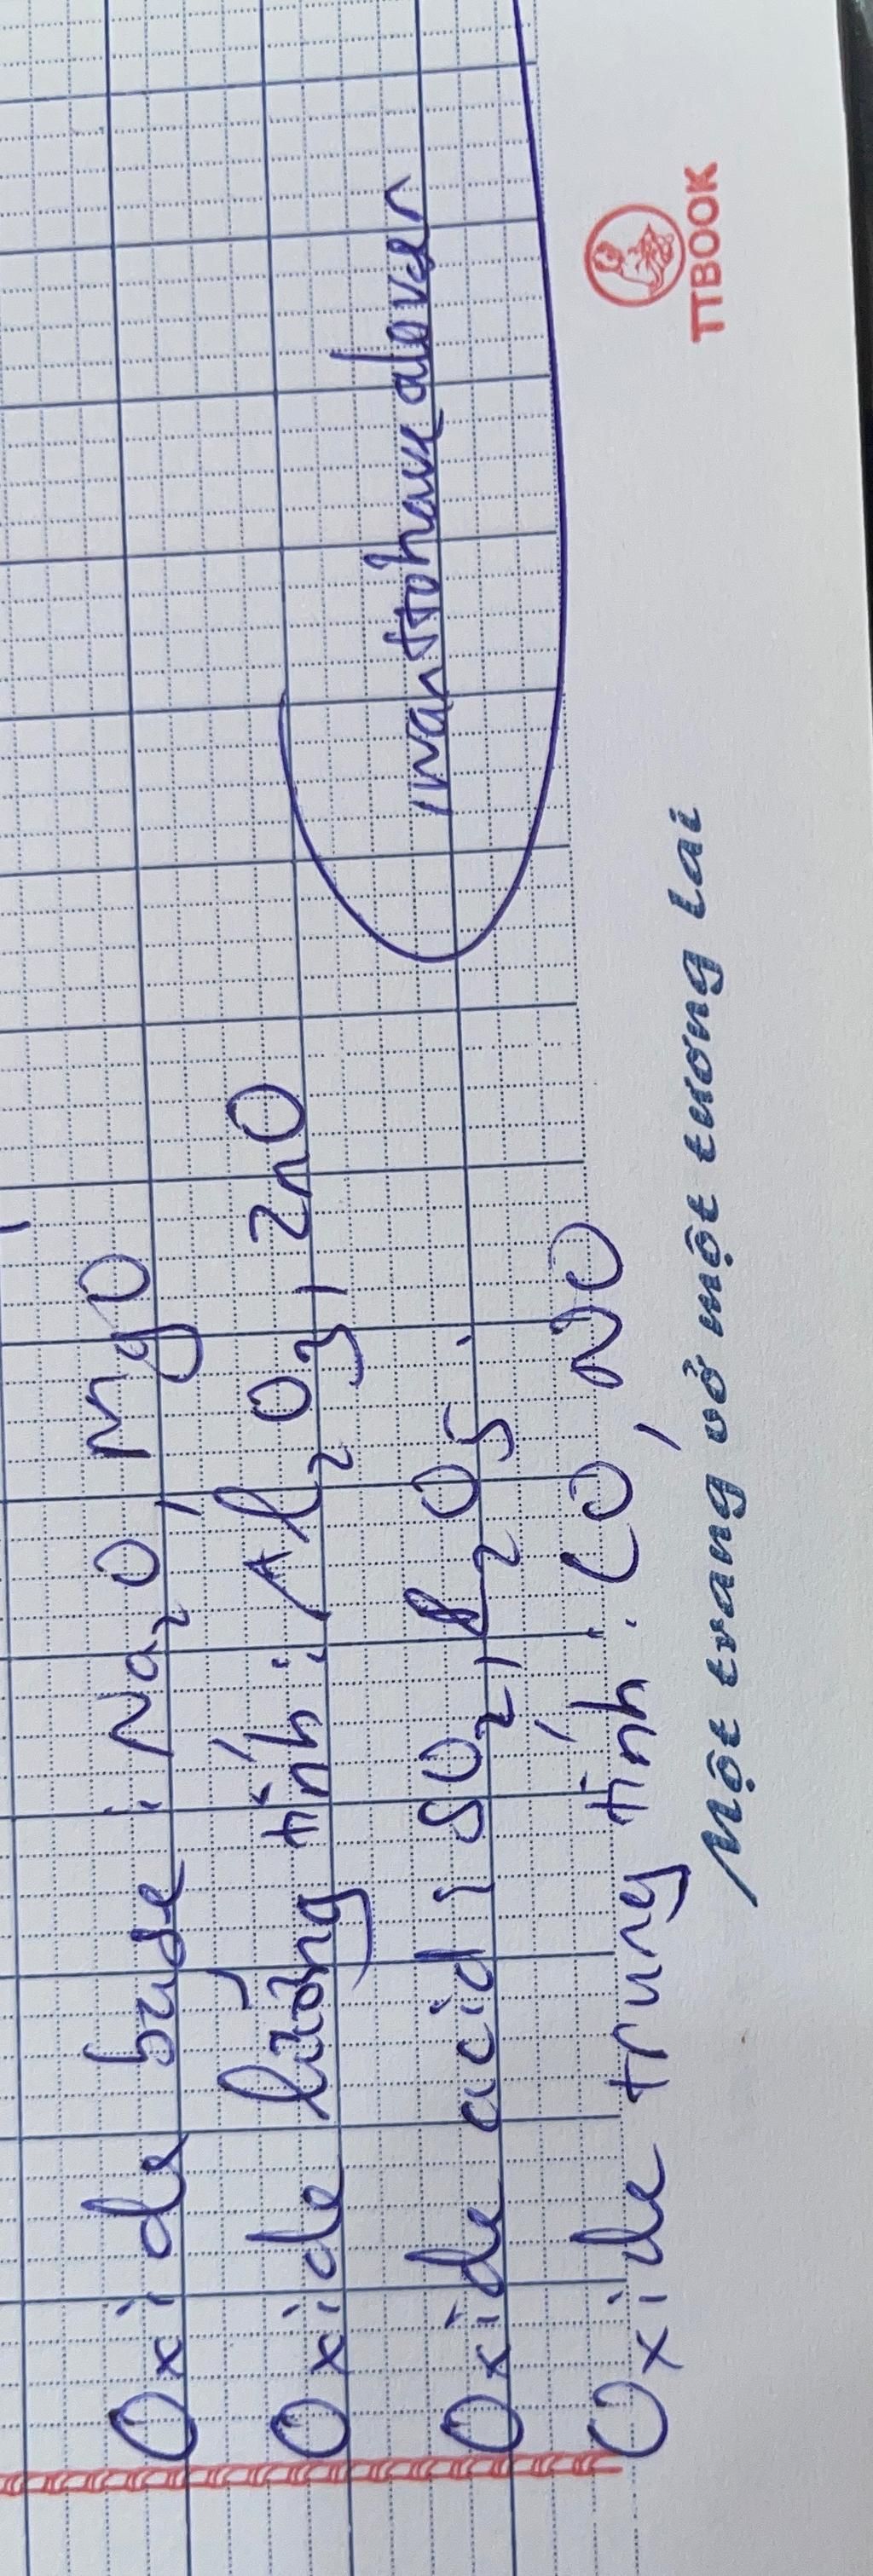 Oxide base : Na2O, MgO
Oxide lưỡng tính : Al2O3, ZnO
Oxide acid : SO2, P2O5
Oxide trung tính : CO, NO
iwanttohavealover
Một trang vở một tương lai
TTBOOK